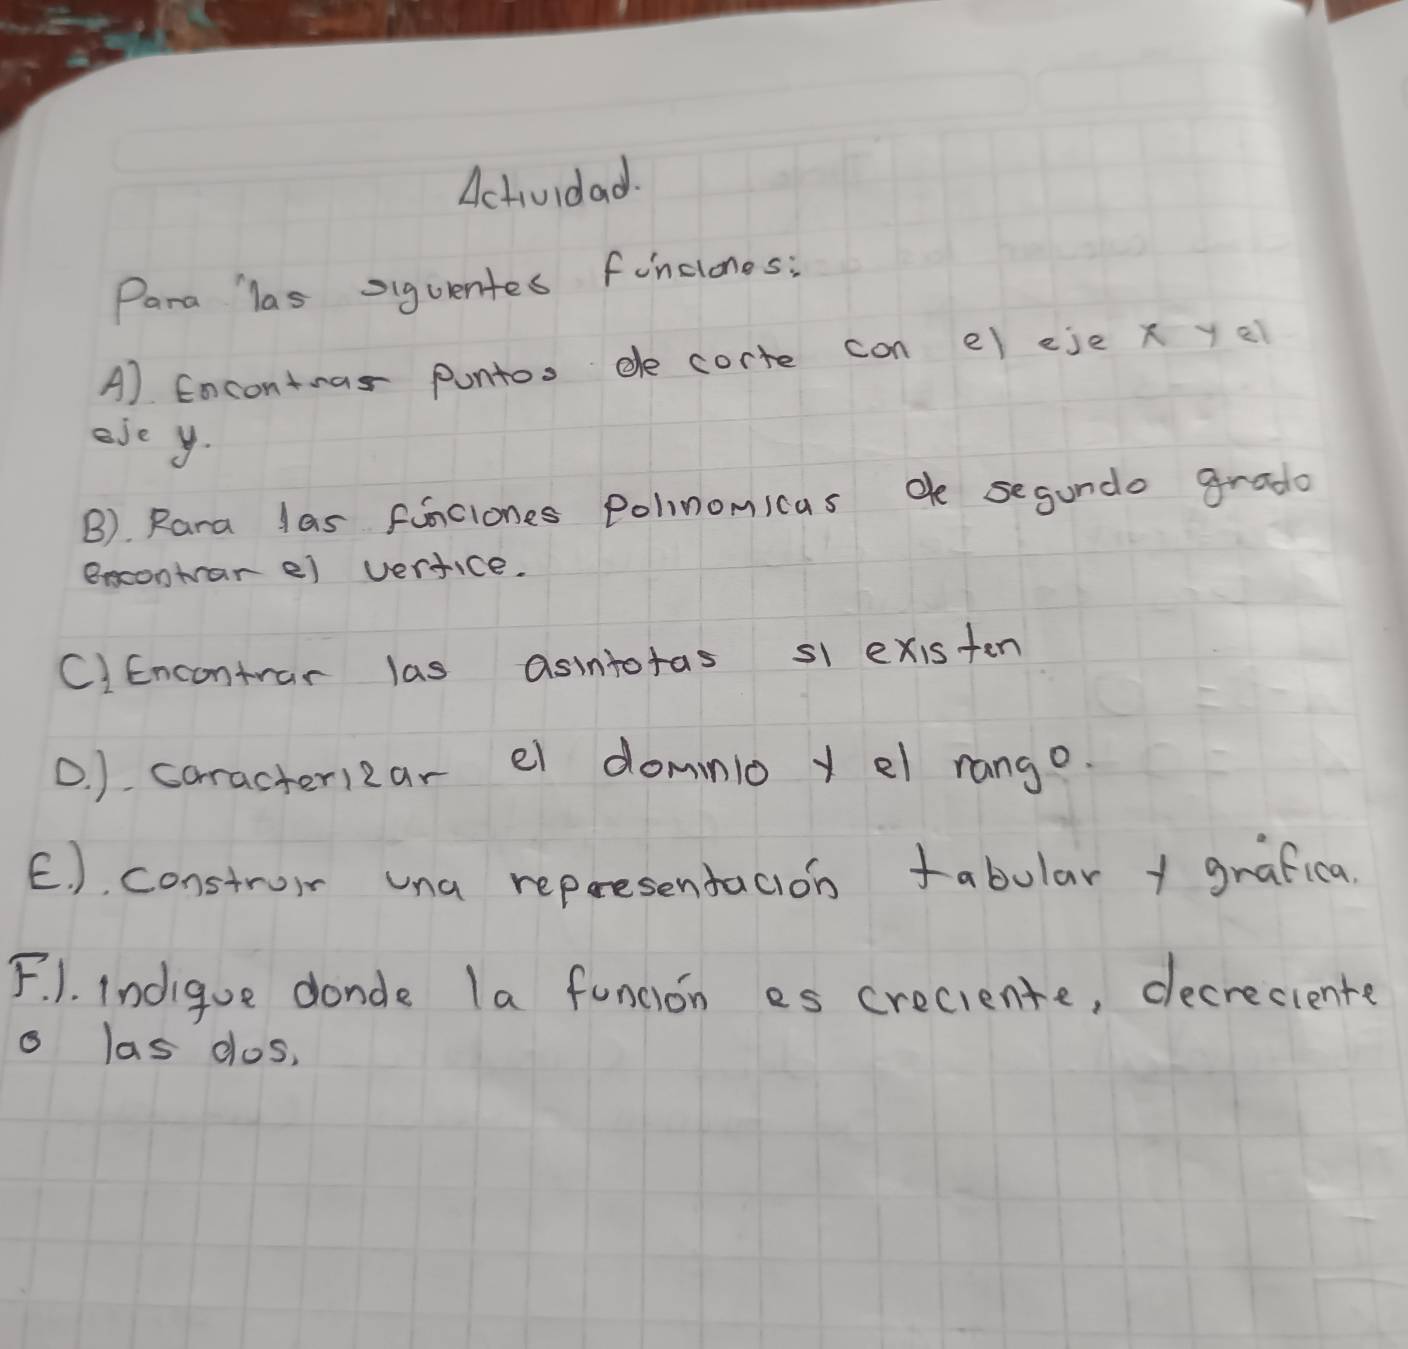 Actividad.
Para las siguientes funciones:
A). Encontrar puntos de corte con el eje x y el
eje y.
B). Para las funciones Polinomicas de segundo grado
encontrar el vertice.
C) Encontrar las asintotas si existen
D.). caracterizar el dominio y el rango.
E.). construir una representación tabular y gráfica.
F.). indique donde la función es creciente, decreciente
o las dos.